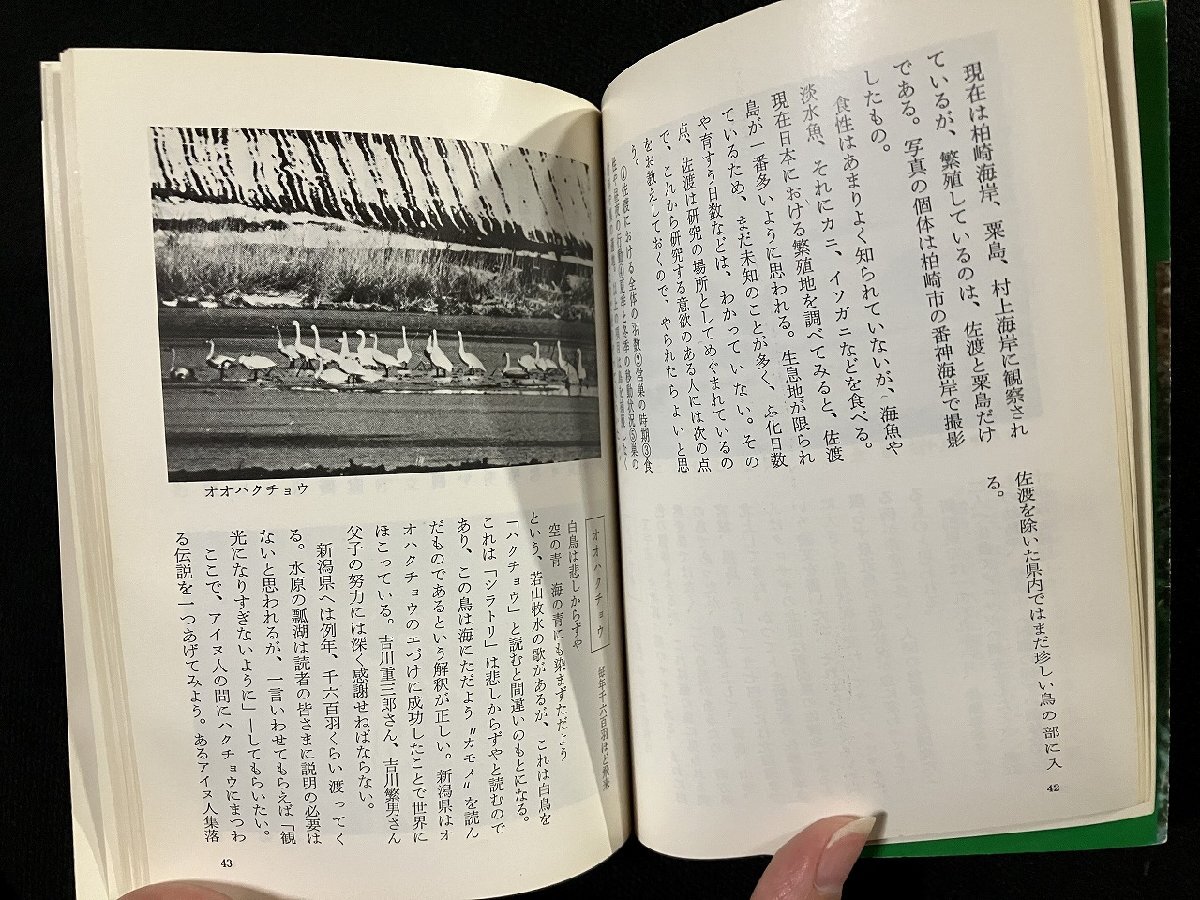 現在は柏崎海岸、粟島、村上海岸に観察され
ているが、繁殖しているのは、佐渡と粟島だけ
である。写真の個体は柏崎市の番神海岸で撮影
したもの。
食性はあまりよく知られていないが、海魚や
淡水魚、それにカニ、イソガニなどを食べる。
現在日本における繁殖地を調べてみると、佐渡
島が一番多いように思われる。生息地が限られ
ているため、まだ未知のことが多く、ふ化日数
や育すう日数などは、わかっていない。その
点、佐渡は研究の場所としてめぐまれているの
で、これから研究する意欲のある人には次の点
をお教えしておくので、やられたらよいと思
う。
①佐渡における全体の羽数②営巣の時期③食
性や昼夜の行動④夏季と冬季の移動状況⑤巣の
佐渡を除いた県内ではまだ珍しい鳥の部に入
る。
42
オオハクチョウ
オオハクチョウ
毎年千六百羽ほど飛来
白鳥は悲しからずや
空の青 海の青にも染まずただよう
という、若山牧水の歌があるが、これは白鳥を
「ハクチョウ」と読むと間違いのもとになる。
これは「シラトリ」は悲しからずやと読むので
あり、この鳥は海にただよう〝カモメ〟を読ん
だものであるという解釈が正しい。新潟県はオ
オハクチョウのエづけに成功したことで世界に
ほこっている。吉川重三郎さん、吉川繁男さん
父子の努力には深く感謝せねばならない。
新潟県へは例年、千六百羽くらい渡ってく
る。水原の瓢湖は読者の皆さまに説明の必要は
ないと思われるが、一言いわせてもらえば「観
光になりすぎないように」―してもらいたい。
ここで、アイヌ人の間にハクチョウにまつわ
る伝説を一つあげてみよう。あるアイヌ人集落
43